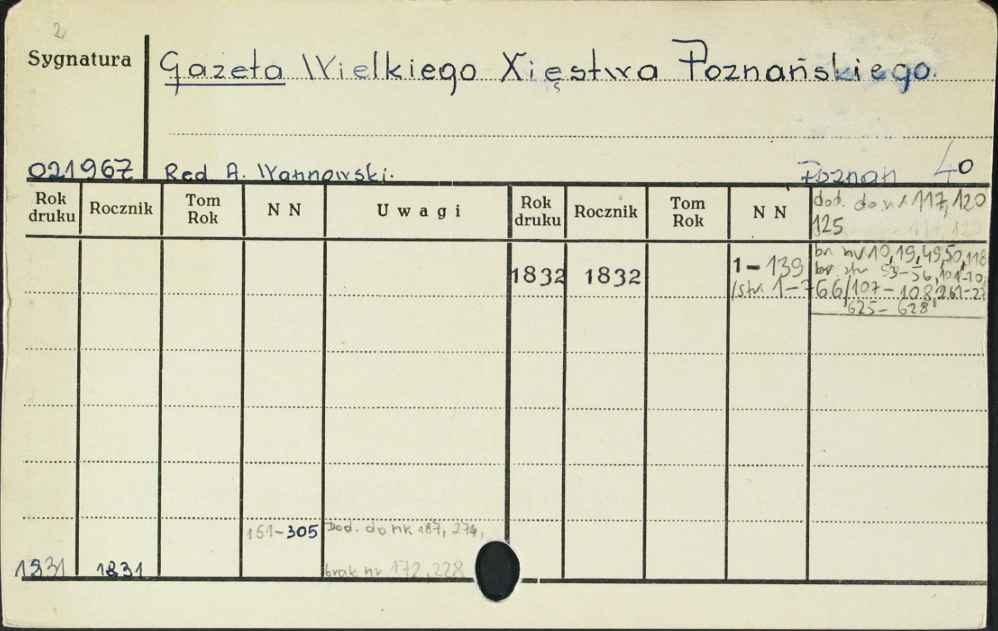 2
Sygnatura
Gazeta Wielkiego Xięstwa Poznańskiego.
021967
Red A. Wannowski.
Poznań 40
Rok druku
Rocznik
Tom Rok
N N
Uwagi
Rok druku
Rocznik
Tom Rok
N N
dod. do nr 117, 120
125
1832 1832 1 - 139
br. nr 10, 19, 49, 50, 118
br str. 53-56, 101-
/str. 1-766/107-108,
625-628
151-305 Dod. do nr 187, 274,
1831 1831 brak nr 172, 228